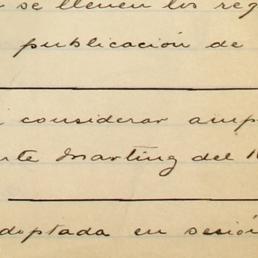 se llenen los reg
publicación de
considerar amp
te Martinez del 1
doptada en sesión